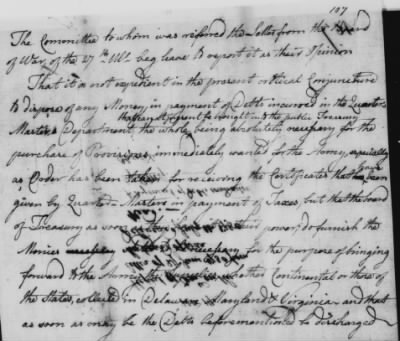 107
The Committee to whom was referred the Letter from the Board
of War of the 27th Ulto beg leave to report it as their Opinion
That it is not expedient in the present critical Conjuncture
to dispose of any Money, in payment of Debts incurred in the Quarter
that has or may be brought into the public Treasury
Master's Department, the whole being absolutely necessary for the
purchase of Provisions immediately wanted for the Army, especially
as Order has been taken for receiving the Certificates that have been
given by Quarter Masters in payment of Taxes but that the Board
of Treasury as soon as in their power, do furnish the
Monies necessary for the purpose of bringing
forward to the Army the Supplies whether Continental or those of
the States, collected in Delaware Maryland & Virginia and that
as soon as may be the Debts beforementioned be discharged